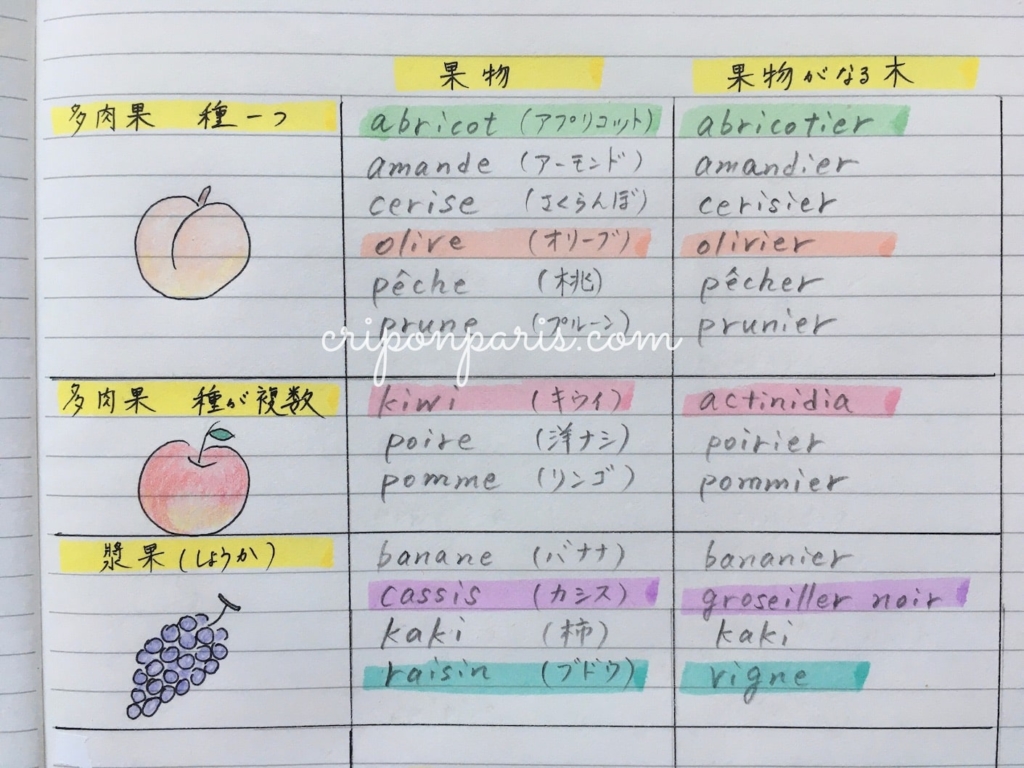 果物 果物がなる木
多肉果 種一つ abricot (アプリコット) abricotier
amande (アーモンド) amandier
cerise (さくらんぼ) cerisier
olive (オリーブ) olivier
pêche (桃) pêcher
prune (プルーン) prunier
criponparis.com
多肉果 種が複数 kiwi (キウイ) actinidia
poire (洋ナシ) poirier
pomme (リンゴ) pommier
漿果(しょうか) banane (バナナ) bananier
cassis (カシス) groseiller noir
kaki (柿) kaki
raisin (ブドウ) vigne